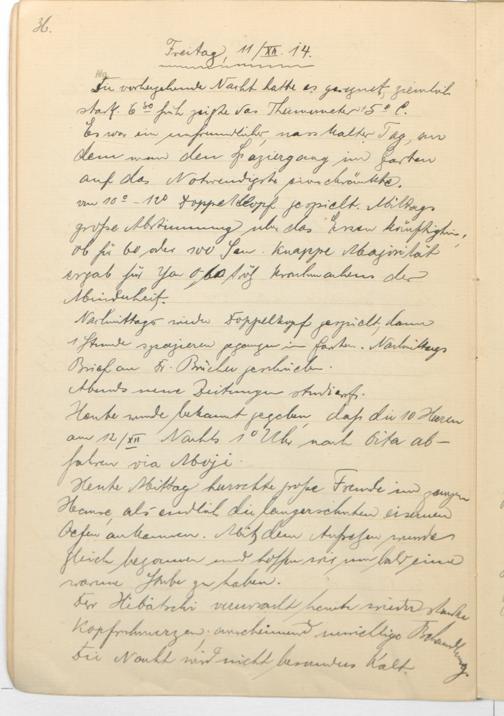 36.
Freitag, 11/XII. 14.
Die vorhergehende Nacht hatte es geregnet, ziemlich
stark. 6 30 früh zeigte das Thermometer 5° C.
Es war ein unfreundlicher, nasskalter Tag, an
dem man den Spaziergang im Garten
auf das Notwendigste einschränkte.
von 10° - 12° Doppelkopf gespielt. Mittags
große Abstimmung über das Essen künftighin,
ob für 60 oder 100 Sen. Knappe Majorität
ergab für Yen 0,60 trotz der
Minderheit.
Nachmittags wieder Doppelkopf gespielt, dann
1 Stunde spazieren gegangen im Garten. Nachmittags
Brief an Fr. Bücher geschrieben.
Abends neue Zeitungen studiert.
Heute wurde bekannt gegeben, daß die 10 Herren
am 12/XII Nachts 1° Uhr nach Oita ab-
fahren via Moji.
Heute Mittag herrschte große Freude im ganzen
Hause, als endlich die langersehnten eisernen
Oefen ankamen. Mit dem Aufstellen wurde
gleich begonnen und hoffen wir nun bald eine
warme Stube zu haben.
Der Hibatschi verursacht heute wieder starke
Kopfschmerzen. anscheinend unrichtige Behandlung.
Die Nacht wird nicht besonders kalt.